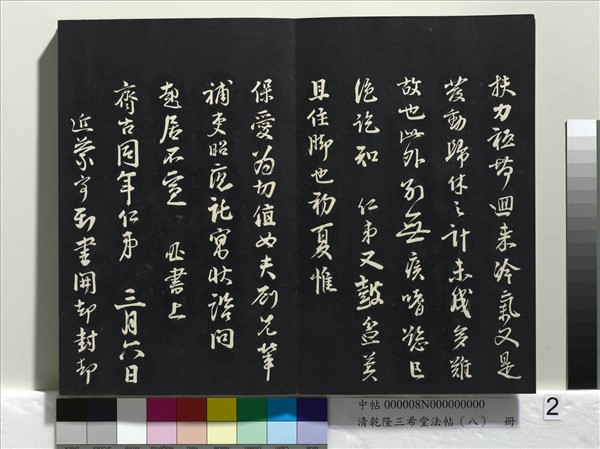 扶力祗
回来冷氣又是
發動歸休之計未成多難
故也此外別無疾唯
仁弟又鼓盆莫
且任腳也初夏惟
保愛為切值女夫別兄輩
補吏昭應託寓狀諮問
起居不宣 思書上
齊古同年仁弟 三月六日
近蒙寄到書開却封却
中帖 000008N000000000
清乾隆三希堂法帖（八） 冊
2